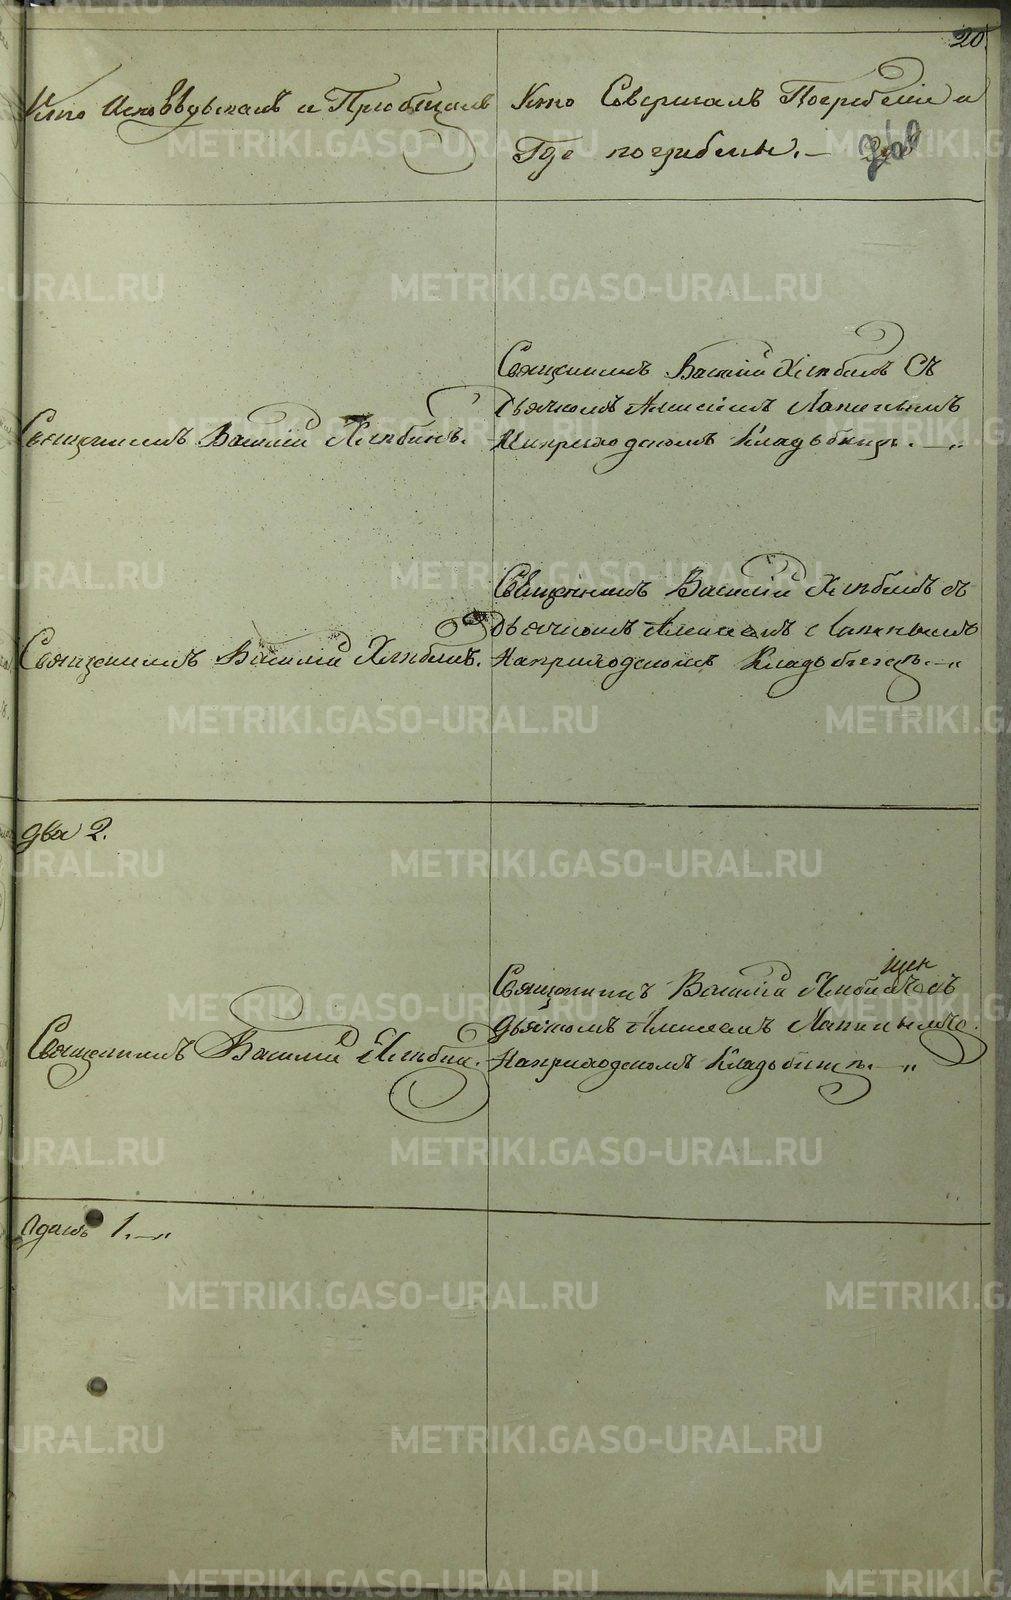 20.
Кто Исповѣдывалъ и Пріобщалъ
Кто Совершалъ Погребеніе и
Где погребены.—
Священникъ Василій Хлебинъ.
Священникъ Василій Хлебинъ Съ
Дьячкомъ Алексеемъ Лапинымъ
На приходскомъ Кладьбище.—„
Священникъ Василій Хлебинъ.
Священникъ Василій Хлебинъ съ
Дьячкомъ Алексеемъ Лапинымъ
На приходскомъ Кладьбище.—„
два 2.
Священникъ Василій Хлебин.
Священникъ Василій съ
Дьячкомъ Алексеемъ Лапинымъ
На приходскомъ Кладьбище.—„
Одинъ 1.—„
METRIKI.GASO-URAL.RU